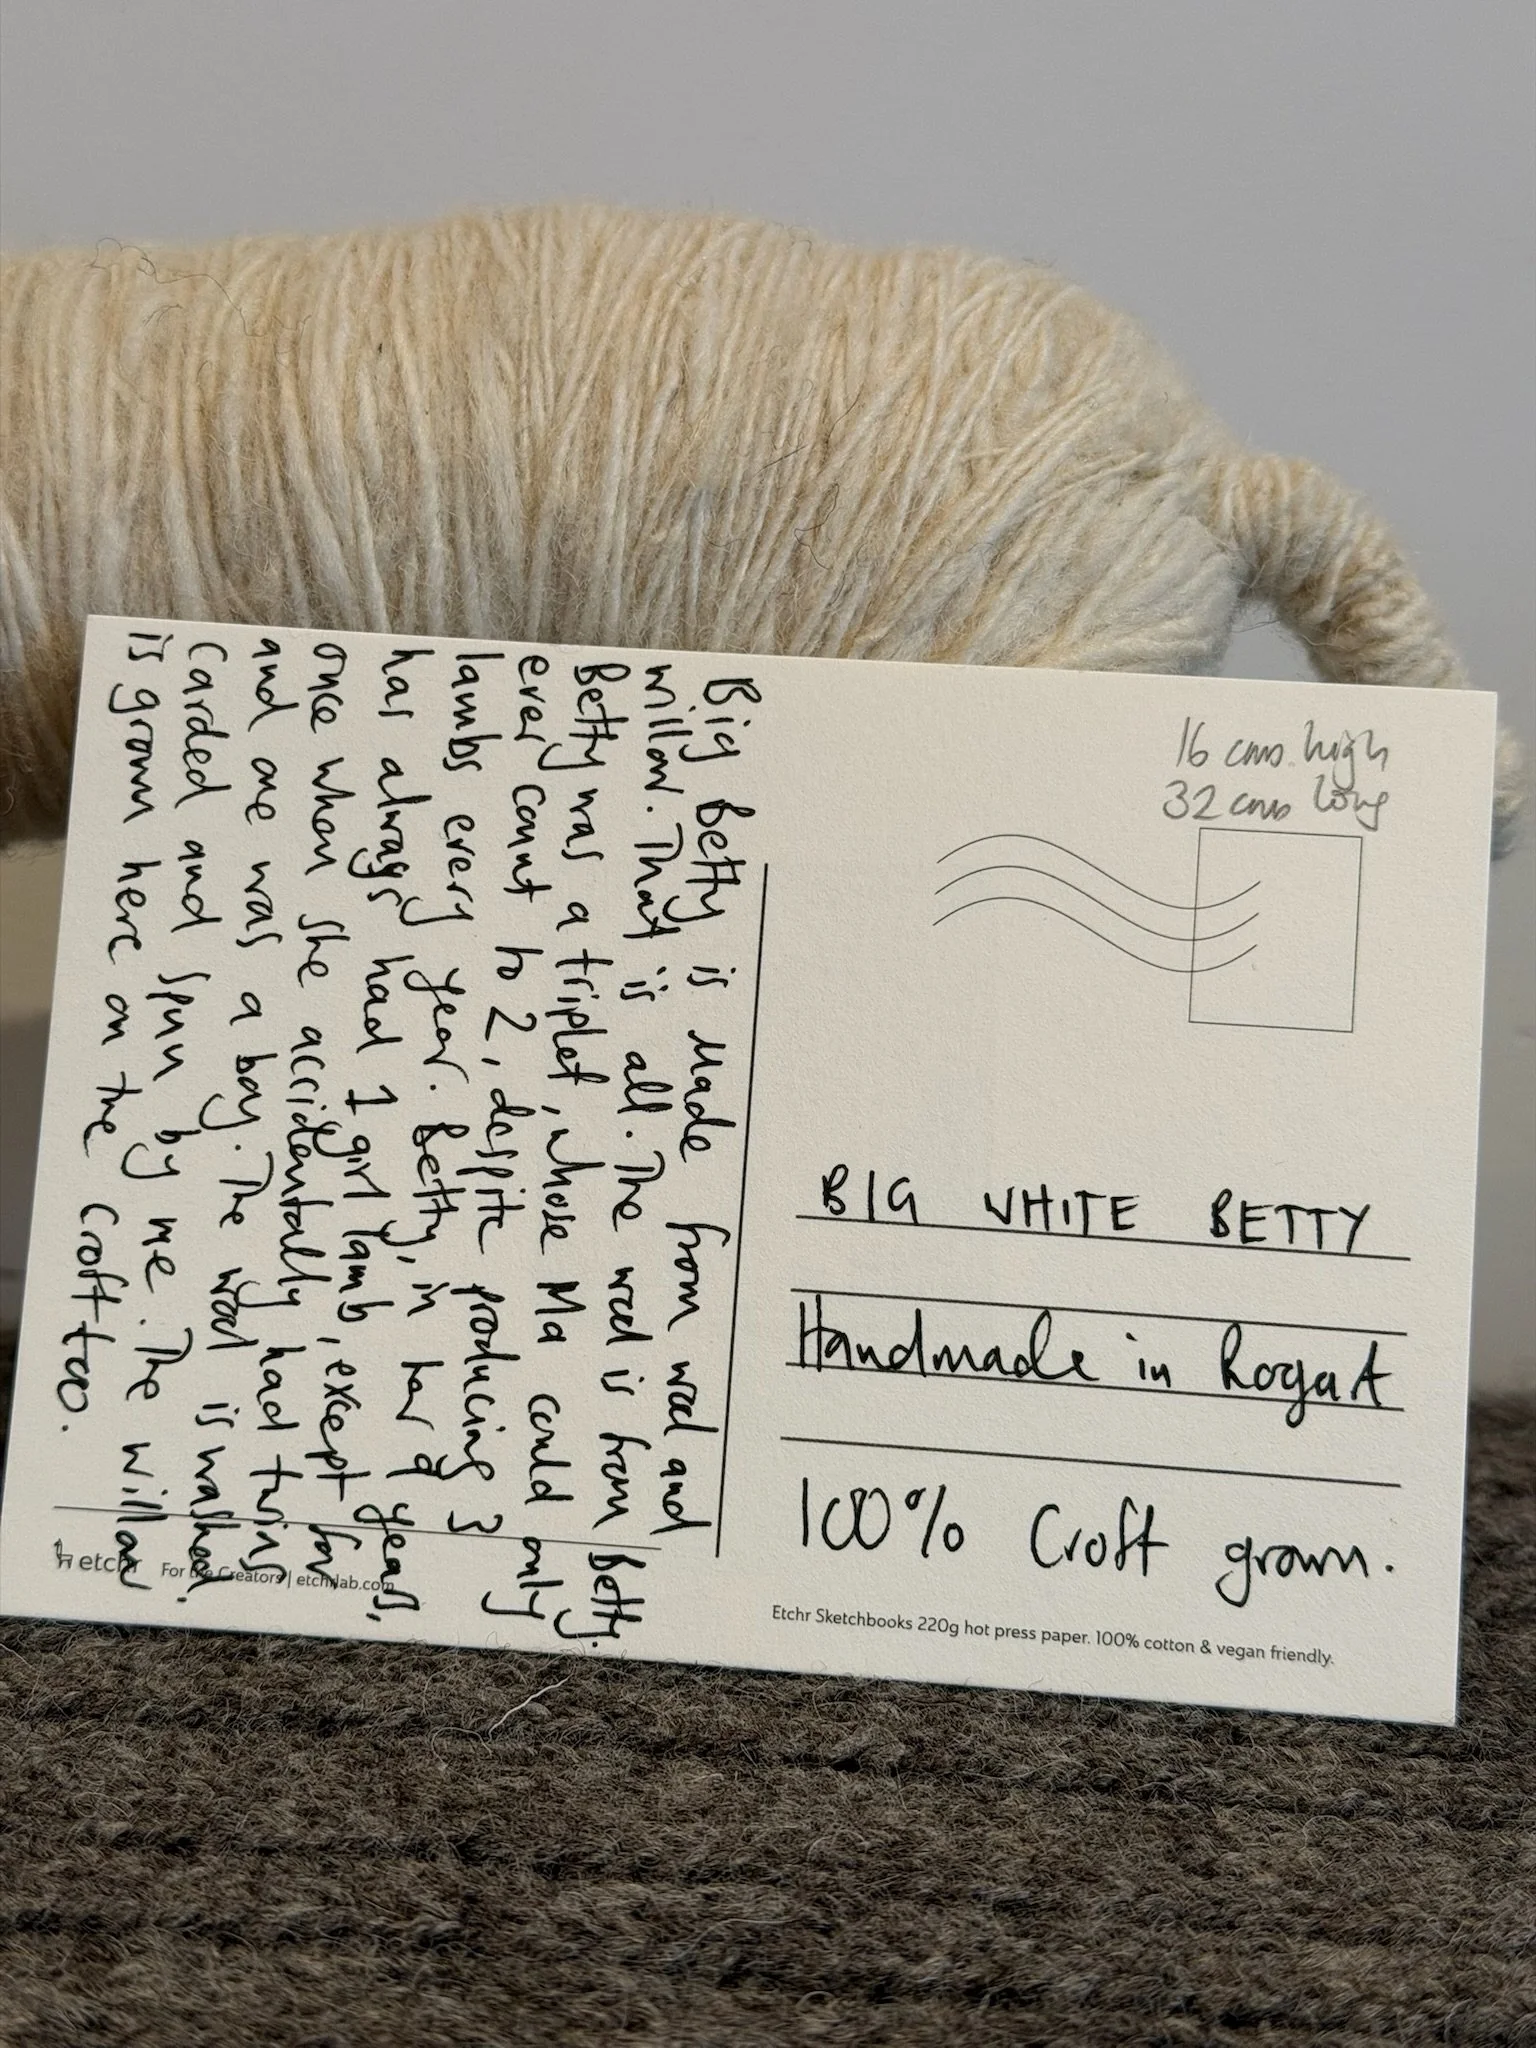 Big Betty is Made from wool and
willow. That is all. The wool is from Betty.
Betty was a triplet, whose Ma could only
ever count to 2, despite producing 3
lambs every year. Betty, in her 9 years,
has always had 1 girl lamb, except for
once when she accidentally had twins
and one was a boy. The wool is washed,
carded and spun by me. The willow
is grown here on the Croft too.
etchr For the Creators | etchrlab.com
16 cms high
32 cms long
BIG WHITE BETTY
Handmade in Rogart
100% Croft grown.
Etchr Sketchbooks 220g hot press paper. 100% cotton & vegan friendly.